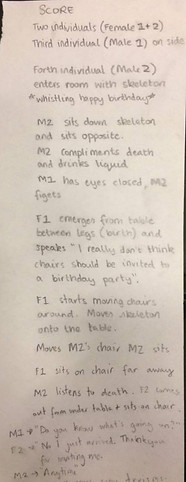 SCORE
Two individuals (Female 1+2)
Third individual (Male 1) on side
Forth individual (Male 2)
enters room with skeleton
*whistling happy birthday*
M2 sits down skeleton
and sits opposite.
M2 compliments death
and drinks liquid
M1 has eyes closed, M2
figets
F1 emerges from table
between legs (birth) and
speaks "I really don't think
chairs should be invited to
a birthday party".
F1 starts moving chairs
around. Moves skeleton
onto the table.
Moves M2's chair M2 sits
F1 sits on chair far away
M2 listens to death. F2 comes
out from under table + sits on chair
M2 → "Do you know what's going on?"
F2 → "No I just arrived. Thankyou
for inviting me.
M2 → "Anytime"